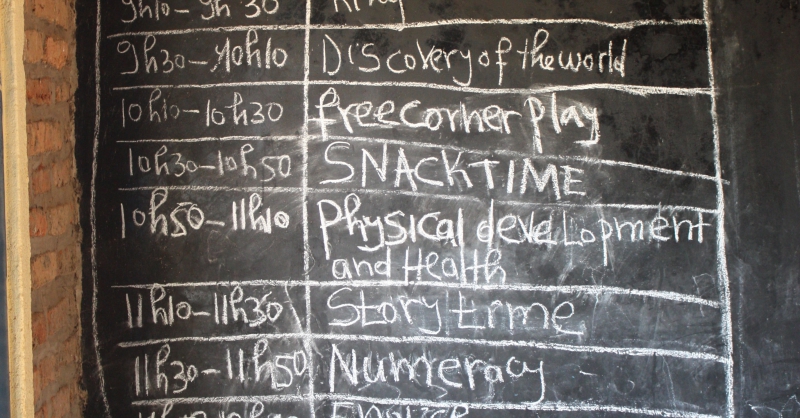 9h10-9h30
9h30-10h10 Discovery of the world
10h10-10h30 free corner play
10h30-10h50 SNACK TIME
10h50-11h10 Physical development
and Health
11h10-11h30 Story time
11h30-11h50 Numeracy